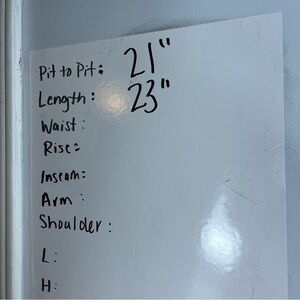 Pit to Pit: 21"
Length: 23"
Waist:
Rise:
Inseam:
Arm:
Shoulder:
L:
H: